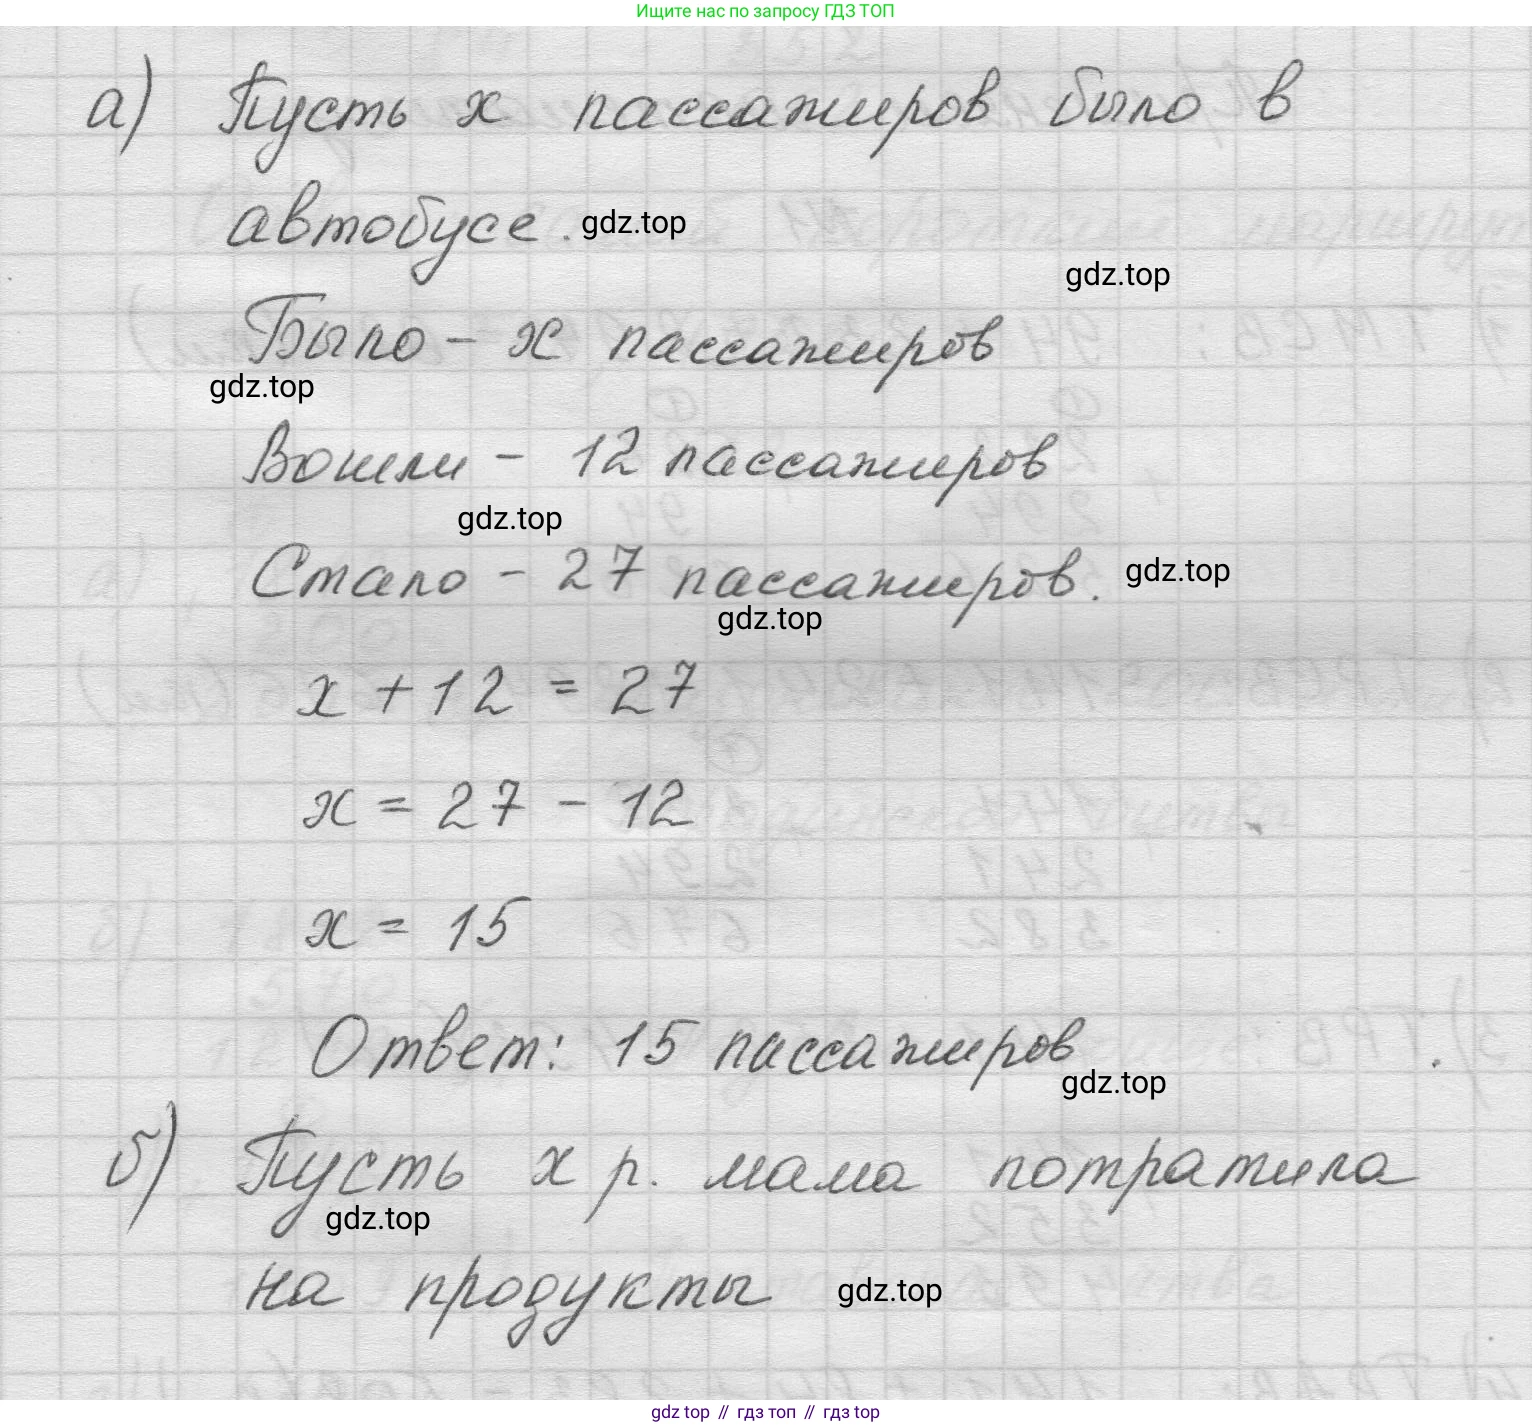 Ищите нас по запросу ГДЗ ТОП
а) Пусть х пассажиров было в
автобусе. gdz.top
gdz.top
Было - х пассажиров
gdz.top
Вошли - 12 пассажиров
gdz.top
Стало - 27 пассажиров. gdz.top
gdz.top
х + 12 = 27
х = 27 - 12
х = 15
Ответ: 15 пассажиров
gdz.top
б) Пусть х р. мама потратила
gdz.top
на продукты gdz.top
gdz top // гдз топ // гдз top